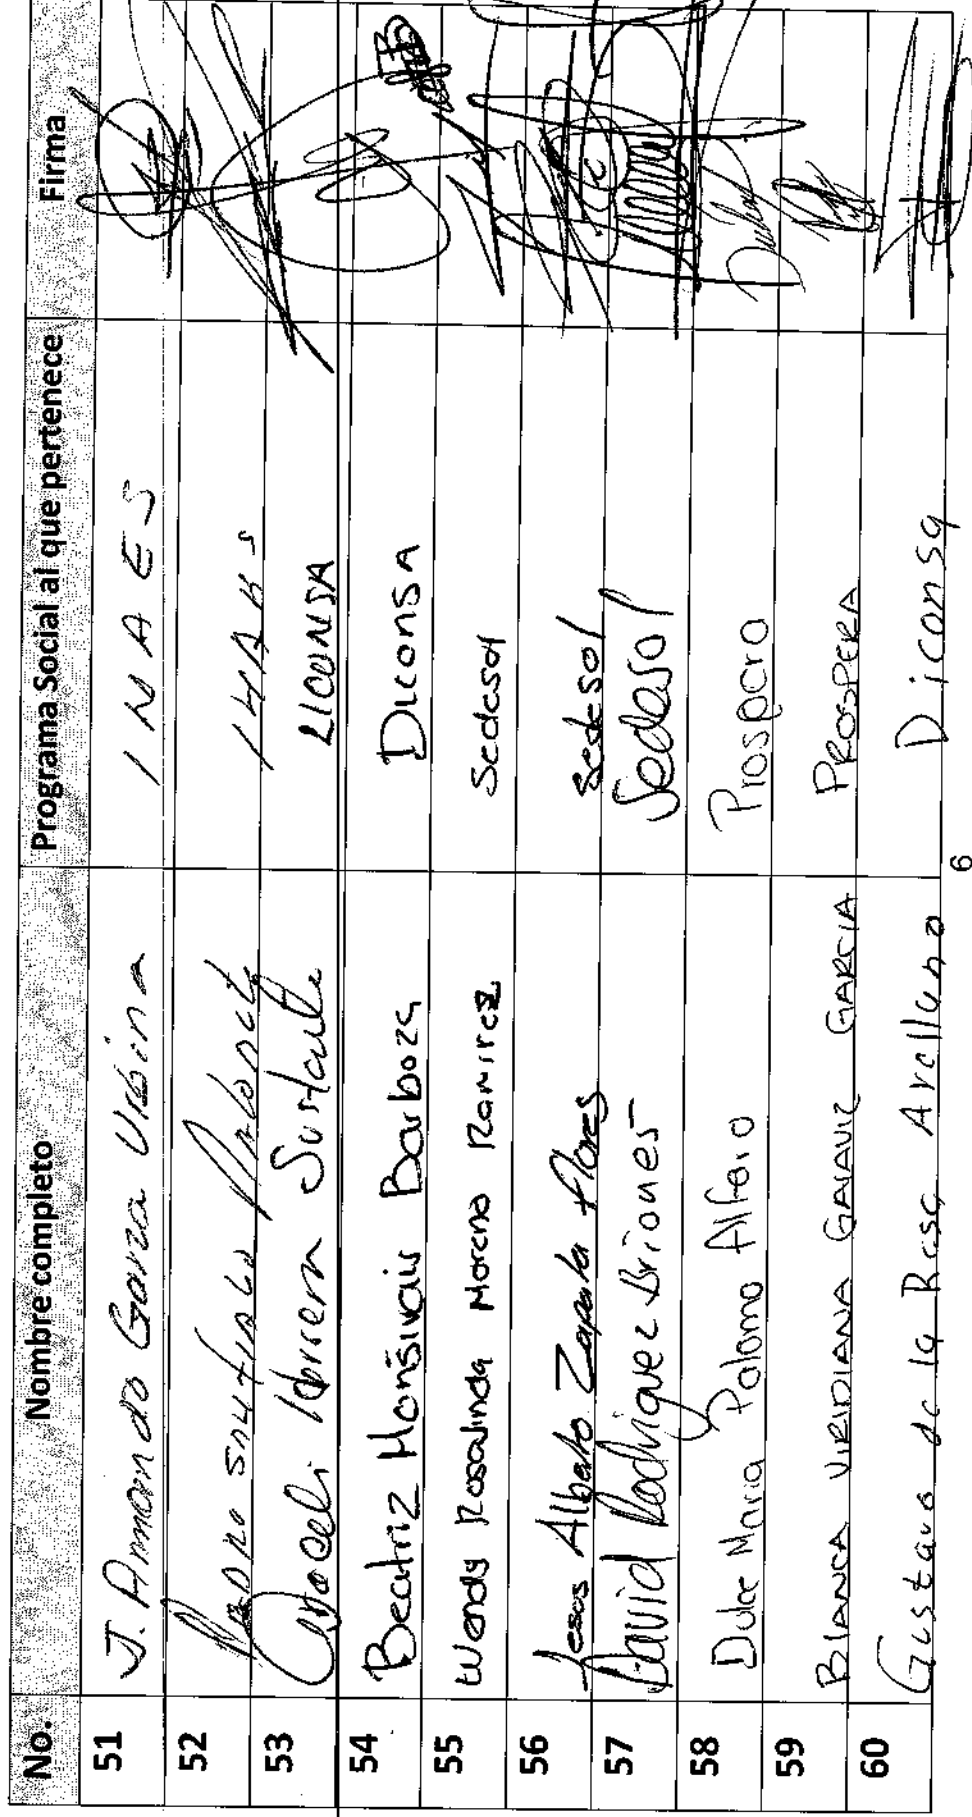 No. Nombre completo Programa Social al que pertenece Firma
51 J. Armando Garza Urbina INAES
52
53 Sustaita LICONSA
54 Beatriz Monsivais Barboza Diconsa
55 Wendy Rosalinda Moreno Ramirez Sedesol
56 Jesus Alberto Zapata flores Sedesol
57 David Rodriguez Briones Sedesol
58 Dulce Maria Palomo Alfaro Prospera
59 BLANCA VIRIDIANA GALAVIZ GARCIA PROSPERA
60 Gustavo de la Rosa Arellano Diconsa
6